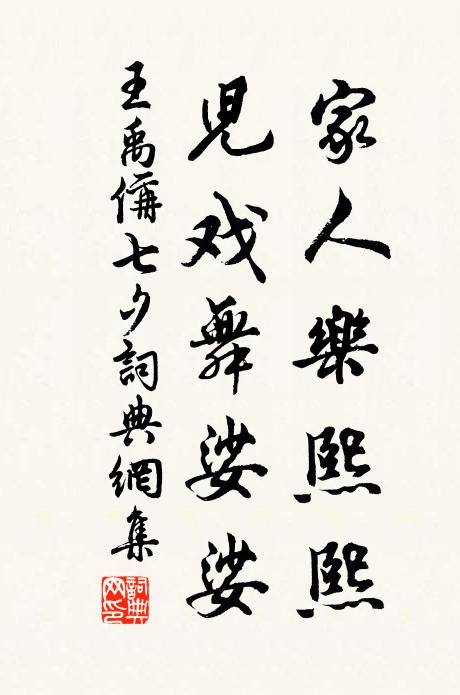 家人樂熙熙
兒戏舞娑娑
王禹偁七夕詞典網集
詞典網印